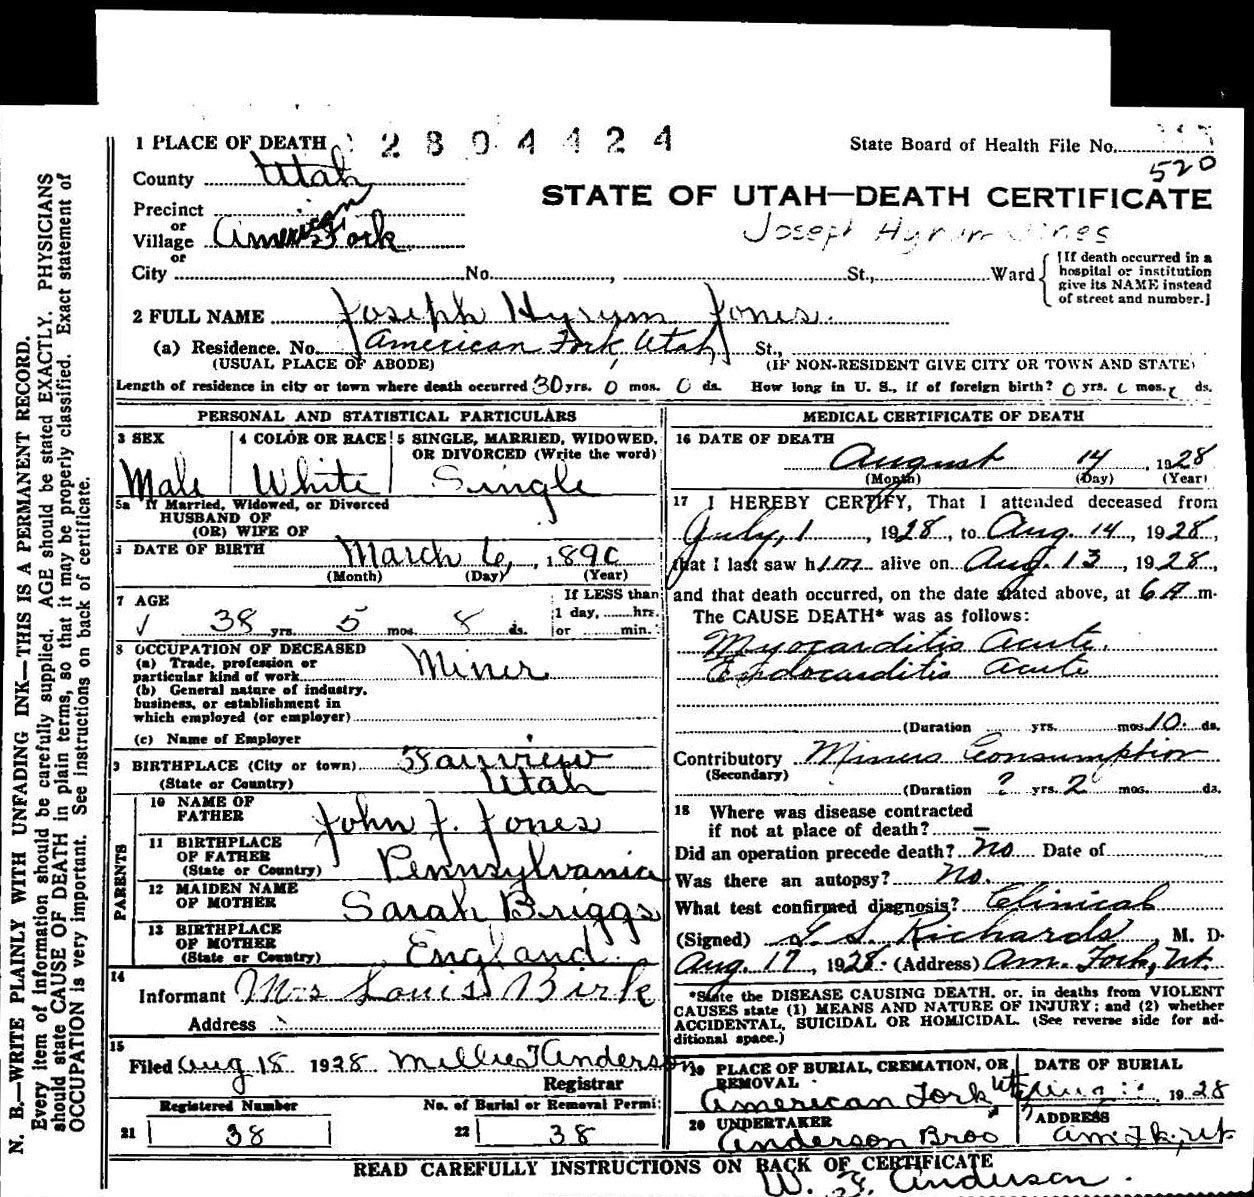 N. B.—WRITE PLAINLY WITH UNFADING INK—THIS IS A PERMANENT RECORD.
Every item of information should be carefully supplied. AGE should be stated EXACTLY. PHYSICIANS
should state CAUSE OF DEATH in plain terms, so that it may be properly classified. Exact statement of
OCCUPATION is very important. See instructions on back of certificate.
1 PLACE OF DEATH
2804424
State Board of Health File No.
520
County Utah
STATE OF UTAH—DEATH CERTIFICATE
Precinct
or
Village American Fork
or
Joseph Hyrum Jones
City No. , St., Ward
[If death occurred in a
hospital or institution
give its NAME instead
of street and number.]
2 FULL NAME Joseph Hyrum Jones.
(a) Residence. No. American Fork, Utah St.,
(USUAL PLACE OF ABODE) (IF NON-RESIDENT GIVE CITY OR TOWN AND STATE)
Length of residence in city or town where death occurred 30 yrs. 0 mos. 0 ds. How long in U. S., if of foreign birth? 0 yrs. mos. ds.
PERSONAL AND STATISTICAL PARTICULARS
3 SEX
Male
4 COLOR OR RACE
White
5 SINGLE, MARRIED, WIDOWED,
OR DIVORCED (Write the word)
Single
5a If Married, Widowed, or Divorced
HUSBAND OF
(OR) WIFE OF
DATE OF BIRTH March 6, , 1890
(Month) (Day) (Year)
7 AGE
38 yrs. 5 mos. 8 ds.
If LESS than
1 day, hrs.
or min.
8 OCCUPATION OF DECEASED
(a) Trade, profession or
particular kind of work Miner
(b) General nature of industry,
business, or establishment in
which employed (or employer)
(c) Name of Employer
9 BIRTHPLACE (City or town) Fairview
(State or Country) Utah
PARENTS
10 NAME OF
FATHER John J. Jones
11 BIRTHPLACE
OF FATHER
(State or Country) Pennsylvania
12 MAIDEN NAME
OF MOTHER Sarah Briggs
13 BIRTHPLACE
OF MOTHER
(State or Country) England.
14
Informant Mrs Louis Birk
Address
15
Filed Aug 18 1928 Millie T Anderson
Registrar
Registered Number No. of Burial or Removal Permit
21 38 22 38
MEDICAL CERTIFICATE OF DEATH
16 DATE OF DEATH
August 14 , 1928
(Month) (Day) (Year)
17 I HEREBY CERTIFY, That I attended deceased from
July, 1 , 1928, to Aug. 14, 1928,
that I last saw him alive on Aug. 13, 1928,
and that death occurred, on the date stated above, at 6 A m.
The CAUSE DEATH* was as follows:
Myocarditis Acute.
Endocarditis Acute
(Duration yrs. mos. 10. ds.
Contributory Miners Consumption
(Secondary)
(Duration ? yrs. 2 mos. ds.
18 Where was disease contracted
if not at place of death? —
Did an operation precede death? no Date of
Was there an autopsy? No.
What test confirmed diagnosis? Clinical
(Signed) G. S. Richards M. D.
Aug. 17, 1928. (Address) Am. Fork, Ut.
*State the DISEASE CAUSING DEATH, or, in deaths from VIOLENT
CAUSES state (1) MEANS AND NATURE OF INJURY; and (2) whether
ACCIDENTAL, SUICIDAL OR HOMICIDAL. (See reverse side for ad-
ditional space.)
19 PLACE OF BURIAL, CREMATION, OR
REMOVAL
American Fork Ut
DATE OF BURIAL
1928
20 UNDERTAKER
Anderson Bros
ADDRESS
Am. Fk., Ut
READ CAREFULLY INSTRUCTIONS ON BACK OF CERTIFICATE
Anderson.